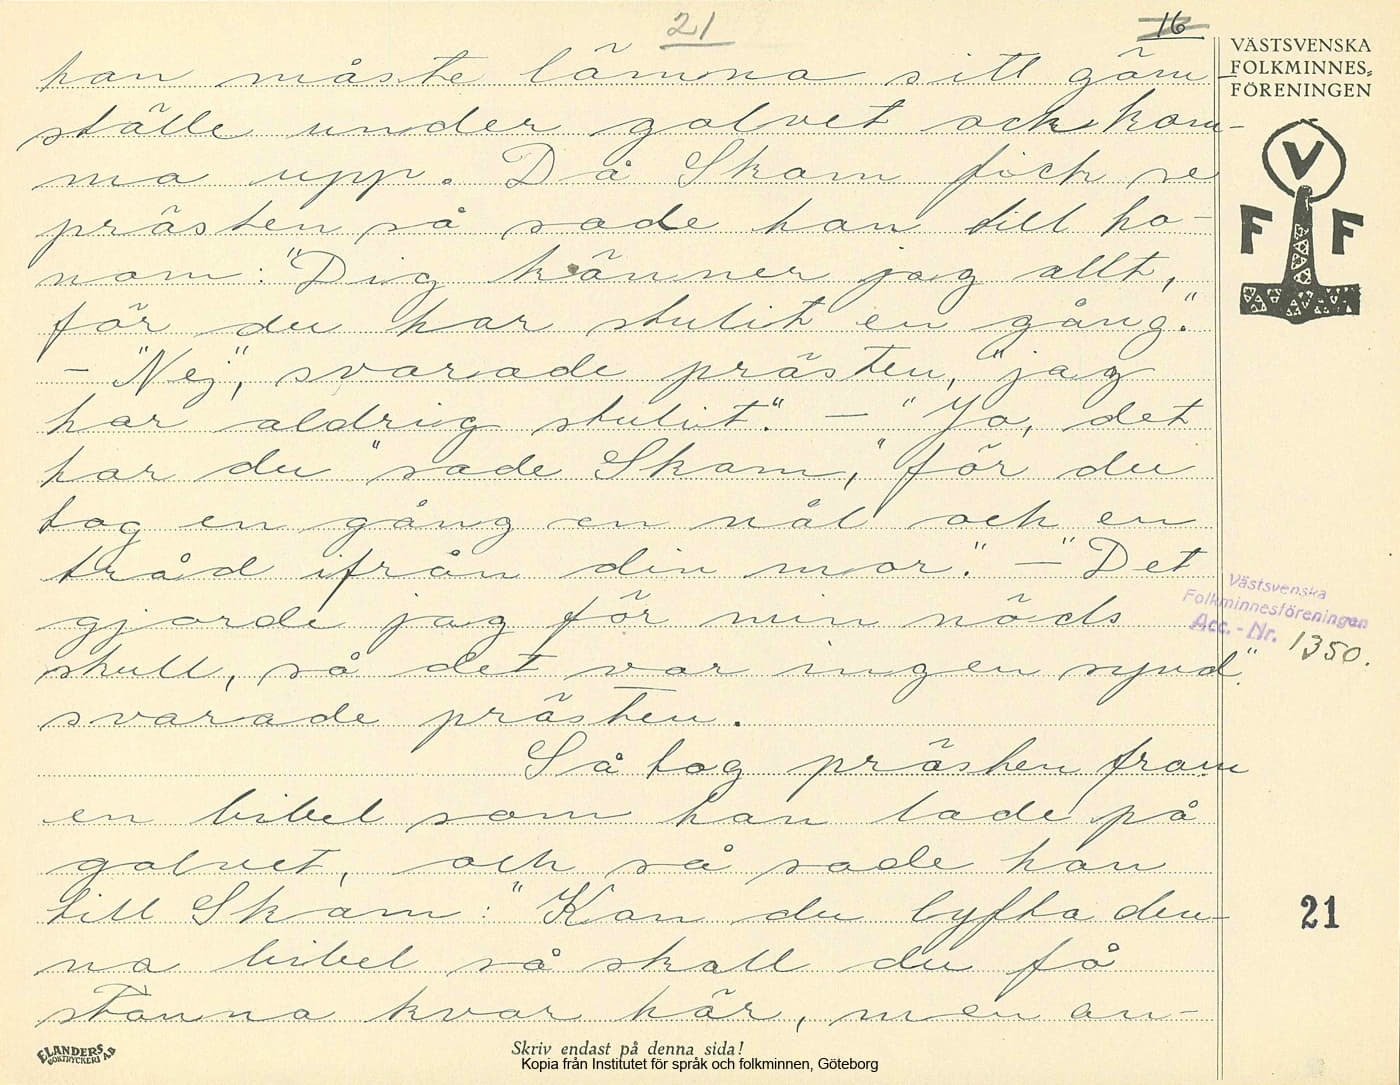 21
16
VÄSTSVENSKA
FOLKMINNES-
FÖRENINGEN
V
F F
han måste lämna sitt göm-
ställe under golvet och kom-
ma upp. Då Skam fick se
prästen så sade han till ho-
nom: "Dig känner jag allt,
för du har stulit en gång."
- "Nej", svarade prästen, "jag
har aldrig stulit." - "Jo, det
har du" sade Skam, "för du
tog en gång en nål och en
tråd ifrån din mor." - "Det
gjorde jag för min nöds
skull, så det var ingen synd"
svarade prästen.
Så tog prästen fram
en bibel som han lade på
golvet, och så sade han
till Skam: "Kan du lyfta den-
na bibel så skall du få
stanna kvar här, men an-
Västsvenska
Folkminnesföreningen
Acc. - Nr. 1350.
21
ELANDERS
BOKTRYCKERI A.B
Skriv endast på denna sida!
Kopia från Institutet för språk och folkminnen, Göteborg